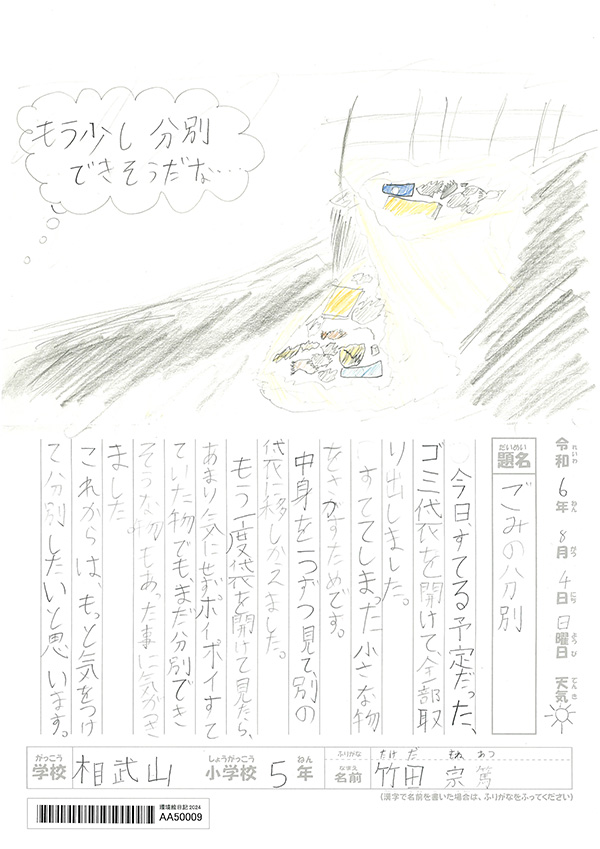 もう少し分別
できそうだな…
令和6年8月4日日曜日 天気
れいわ ねん がつ にち ようび てんき
だいめい
題名 ごみの分別
今日、すてる予定だった、
ゴミ袋を開けて、全部取
り出しました。
すててしまった小さな物
をさがすためです。
中身を一つずつ見て、別の
袋に移しかえました。
もう一度袋を開けて見たら、
あまり気にせずポイポイすて
ていた物でも、まだ分別でき
そうな物もあった事に気がつき
ました。
これからは、もっと気をつけ
て分別したいと思います。
がっこう しょうがっこう ねん ふりがな たけ だ むね あつ
学校 相武山 小学校 5年 なまえ 名前 竹田 宗篤
(漢字で名前を書いた場合は、ふりがなをふってください)
環境絵日記2024
AA50009